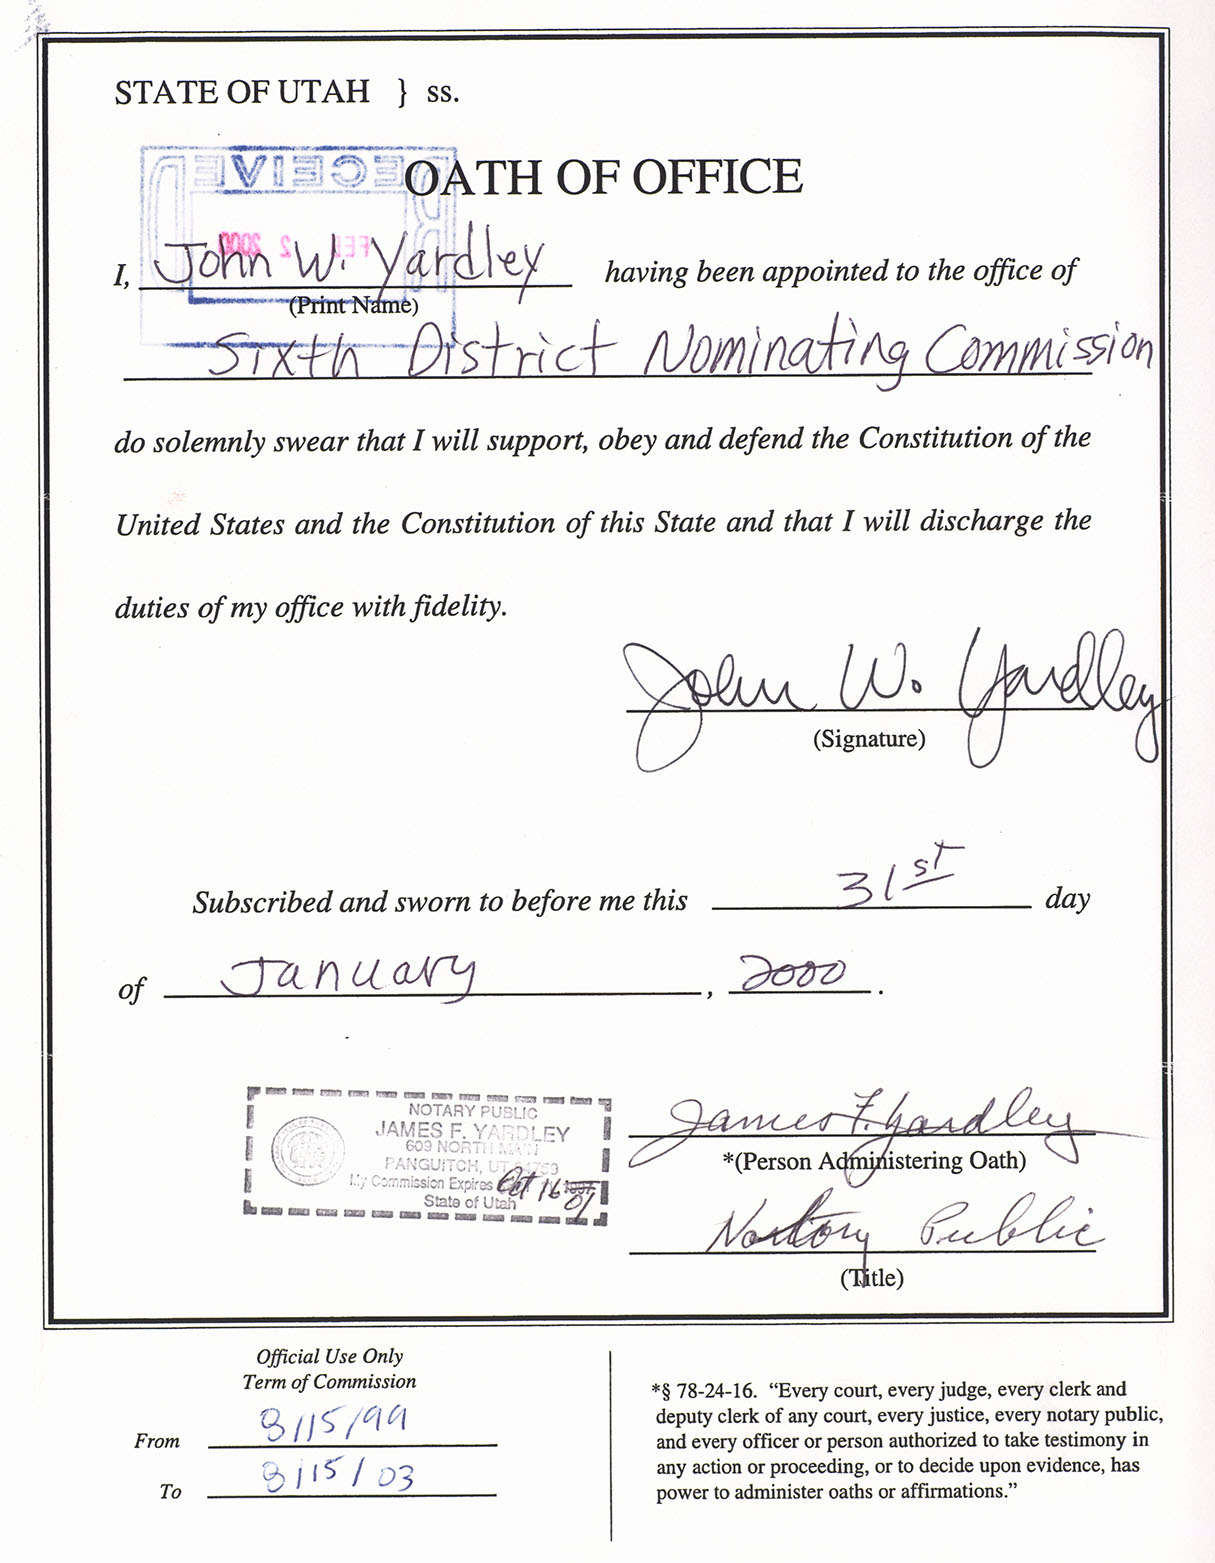 STATE OF UTAH } ss.
RECEIVED
OATH OF OFFICE
FEB 2 2000
I, John W. Yardley having been appointed to the office of
(Print Name)
Sixth District Nominating Commission
do solemnly swear that I will support, obey and defend the Constitution of the
United States and the Constitution of this State and that I will discharge the
duties of my office with fidelity.
John W. Yardley
(Signature)
Subscribed and sworn to before me this 31st day
of January, 2000.
NOTARY PUBLIC
JAMES F. YARDLEY
609 NORTH MAIN
PANGUITCH, UT
My Commission Expires Oct 16 01
State of Utah
James F. Yardley
*(Person Administering Oath)
Notory Public
(Title)
Official Use Only
Term of Commission
From 8/15/99
To 8/15/03
*§ 78-24-16. “Every court, every judge, every clerk and
deputy clerk of any court, every justice, every notary public,
and every officer or person authorized to take testimony in
any action or proceeding, or to decide upon evidence, has
power to administer oaths or affirmations.”